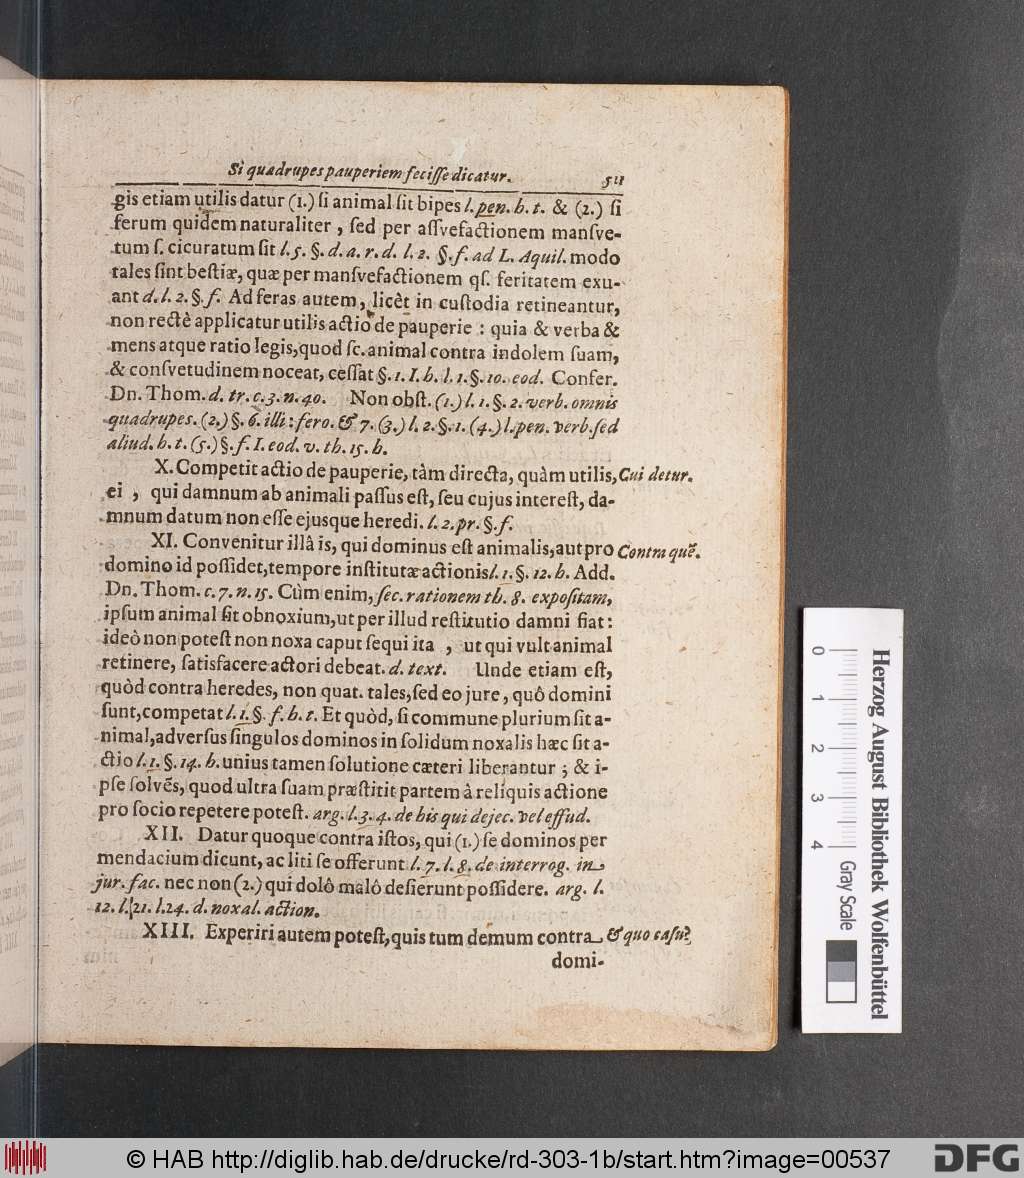 Si quadrupes pauperiem fecisse dicatur. 511
gis etiam utilis datur (1.) si animal sit bipes l. pen. h. t. & (2.) si
ferum quidem naturaliter, sed per assvefactionem mansve-
tum s. cicuratum sit l. 5. §. d. a. r. d. l. 2. §. f. ad L. Aquil. modo
tales sint bestiæ, quæ per mansvefactionem qs. feritatem exu-
ant d. l. 2. §. f. Ad feras autem, licèt in custodia retineantur,
non rectè applicatur utilis actio de pauperie: quia & verba &
mens atque ratio legis, quod sc. animal contra indolem suam,
& consvetudinem noceat, cessat §. 1. I. h. l. 1. §. 10. eod. Confer.
Dn. Thom. d. tr. c. 3. n. 40. Non obst. (1.) l. 1. §. 2. verb. omnis
quadrupes. (2.) §. 6. illi: fero. & 7. (3.) l. 2. §. 1. (4.) l. pen. verb. sed
aliud. h. t. (5.) §. f. I. eod. v. th. 15. h.
X. Competit actio de pauperie, tàm directa, quàm utilis, Cui detur.
ei, qui damnum ab animali passus est, seu cujus interest, da-
mnum datum non esse ejusque heredi. l. 2. pr. §. f.
XI. Convenitur illâ is, qui dominus est animalis, aut pro Contra quē.
domino id possidet, tempore institutæ actionis l. 1. §. 12. h. Add.
Dn. Thom. c. 7. n. 15. Cùm enim, sec. rationem th. 8. expositam,
ipsum animal sit obnoxium, ut per illud restitutio damni fiat:
ideò non potest non noxa caput sequi ita, ut qui vult animal
retinere, satisfacere actori debeat. d. text. Unde etiam est,
quòd contra heredes, non quat. tales, sed eo jure, quô domini
sunt, competat l. 1. §. f. h. t. Et quòd, si commune plurium sit a-
nimal, adversus singulos dominos in solidum noxalis hæc sit a-
ctio l. 1. §. 14. h. unius tamen solutione cæteri liberantur; & i-
pse solvēs, quod ultra suam præstitit partem à reliquis actione
pro socio repetere potest. arg. l. 3. 4. de his qui dejec. vel effud.
XII. Datur quoque contra istos, qui (1.) se dominos per
mendacium dicunt, ac liti se offerunt l. 7. l. 8. de interrog. in
jur. fac. nec non (2.) qui dolô malô desierunt possidere. arg. l.
12. l. 21. l. 24. d. noxal. action.
XIII. Experiri autem potest, quis tum demum contra & quo casu?
domi-
0 1 2 3 4
Herzog August Bibliothek Wolfenbüttel
Gray Scale
© HAB http://diglib.hab.de/drucke/rd-303-1b/start.htm?image=00537
DFG